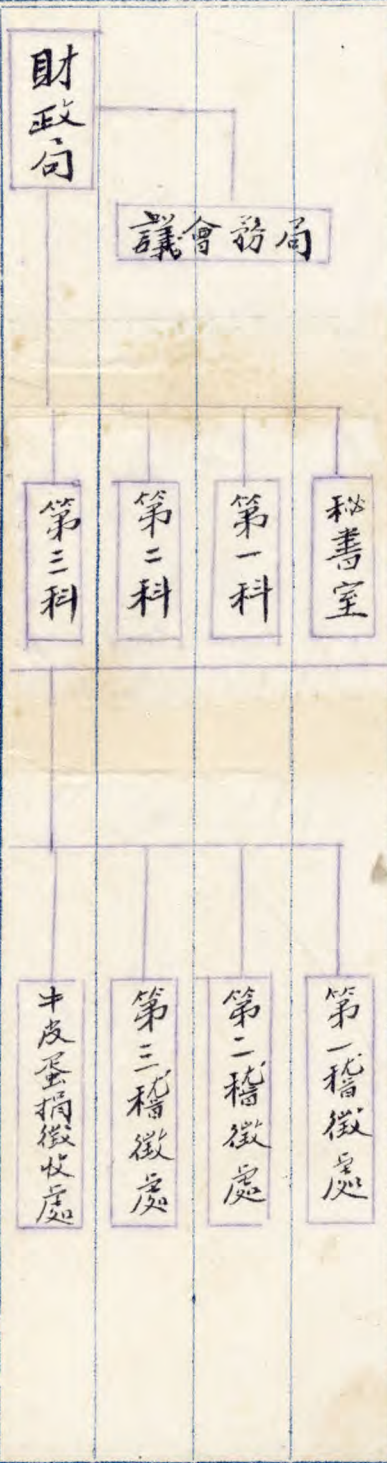 財政局
議會務局
秘書室
第一科
第二科
第三科
第一稽徵處
第二稽徵處
第三稽徵處
牛皮蛋捐徵收處